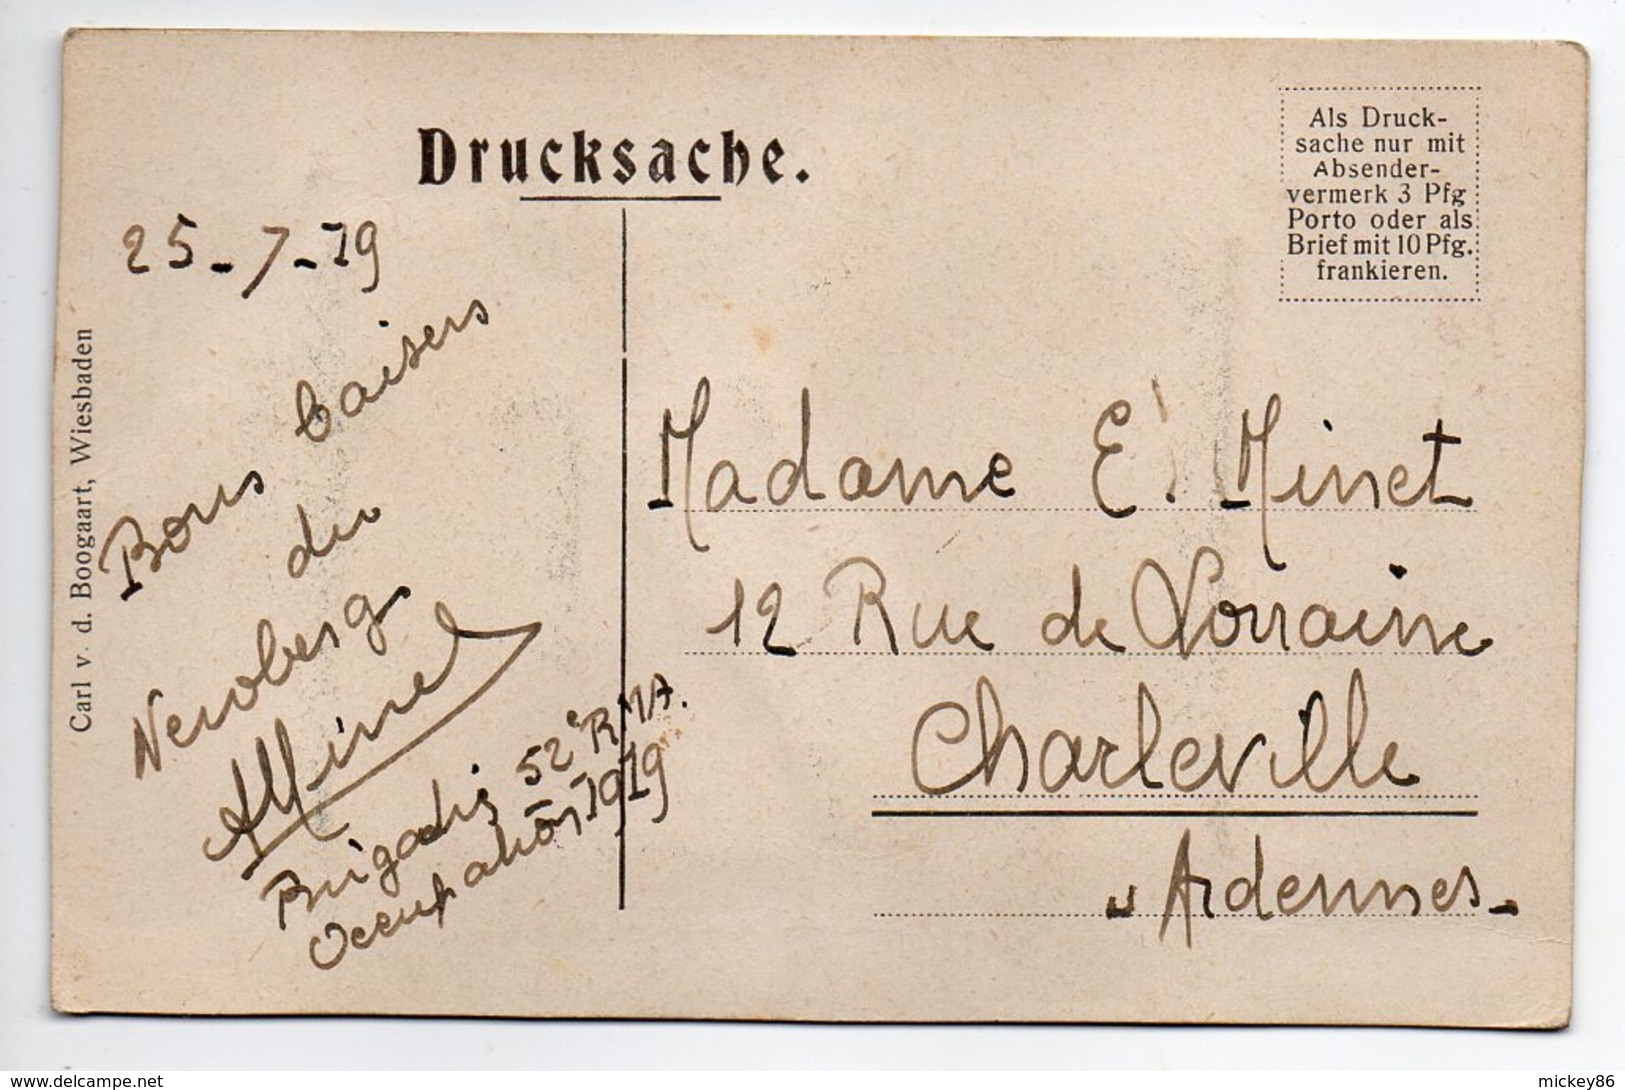 Drucksache.
Als Druck-
sache nur mit
Absender-
vermerk 3 Pfg
Porto oder als
Brief mit 10 Pfg.
frankieren.
Carl v. d. Boogaart, Wiesbaden
25-7-19
Bons baisers
du
Neroberg
AMinet
Brigadier 52e RMA.
Occupation 1919
Madame E. Minet
12 Rue de Lorraine
Charleville
"Ardennes-
mickey86